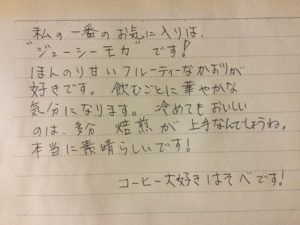 私の一番のお気に入りは、
"ジューシーモカ"です!
ほんのり甘いフルーティーなかおりが
好きです。飲むごとに華やかな
気分になります。冷めてもおいしい
のは、多分 焙煎が上手なんでしょうね。
本当に素晴らしいです!
コーヒー大好きはそべです!